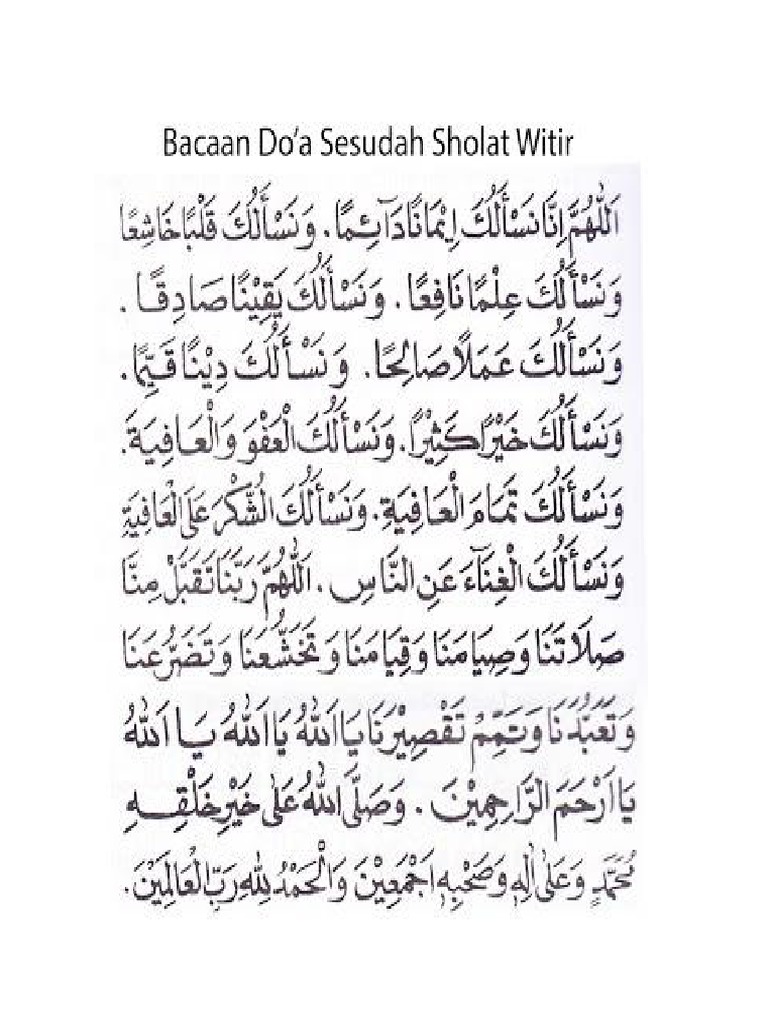 Bacaan Do'a Sesudah Sholat Witir
اَللّٰهُمَّ اِنَّا نَسْأَلُكَ اِيْمَانًا دَآئِمًا. وَنَسْأَلُكَ قَلْبًا خَاشِعًا
وَنَسْأَلُكَ عِلْمًا نَافِعًا. وَنَسْأَلُكَ يَقِيْنًا صَادِقًا.
وَنَسْأَلُكَ عَمَلًا صَالِحًا. وَنَسْأَلُكَ دِيْنًا قَيِّمًا.
وَنَسْأَلُكَ خَيْرًا كَثِيْرًا. وَنَسْأَلُكَ الْعَفْوَ وَالْعَافِيَةَ.
وَنَسْأَلُكَ تَمَامَ الْعَافِيَةِ. وَنَسْأَلُكَ الشُّكْرَ عَلَى الْعَافِيَةِ
وَنَسْأَلُكَ الْغِنَآءَ عَنِ النَّاسِ. اَللّٰهُمَّ رَبَّنَا تَقَبَّلْ مِنَّا
صَلَاتَنَا وَصِيَامَنَا وَقِيَامَنَا وَتَخَشُّعَنَا وَتَضَرُّعَنَا
وَتَعَبُّدَنَا وَتَمِّمْ تَقْصِيْرَنَا يَا اَللهُ يَا اَللهُ يَا اَللهُ
يَا اَرْحَمَ الرَّاحِمِيْنَ. وَصَلَّى اللهُ عَلٰى خَيْرِ خَلْقِهِ
مُحَمَّدٍ وَعَلٰى اٰلِهٖ وَصَحْبِهٖ اَجْمَعِيْنَ وَالْحَمْدُ لِلّٰهِ رَبِّ الْعَالَمِيْنَ.